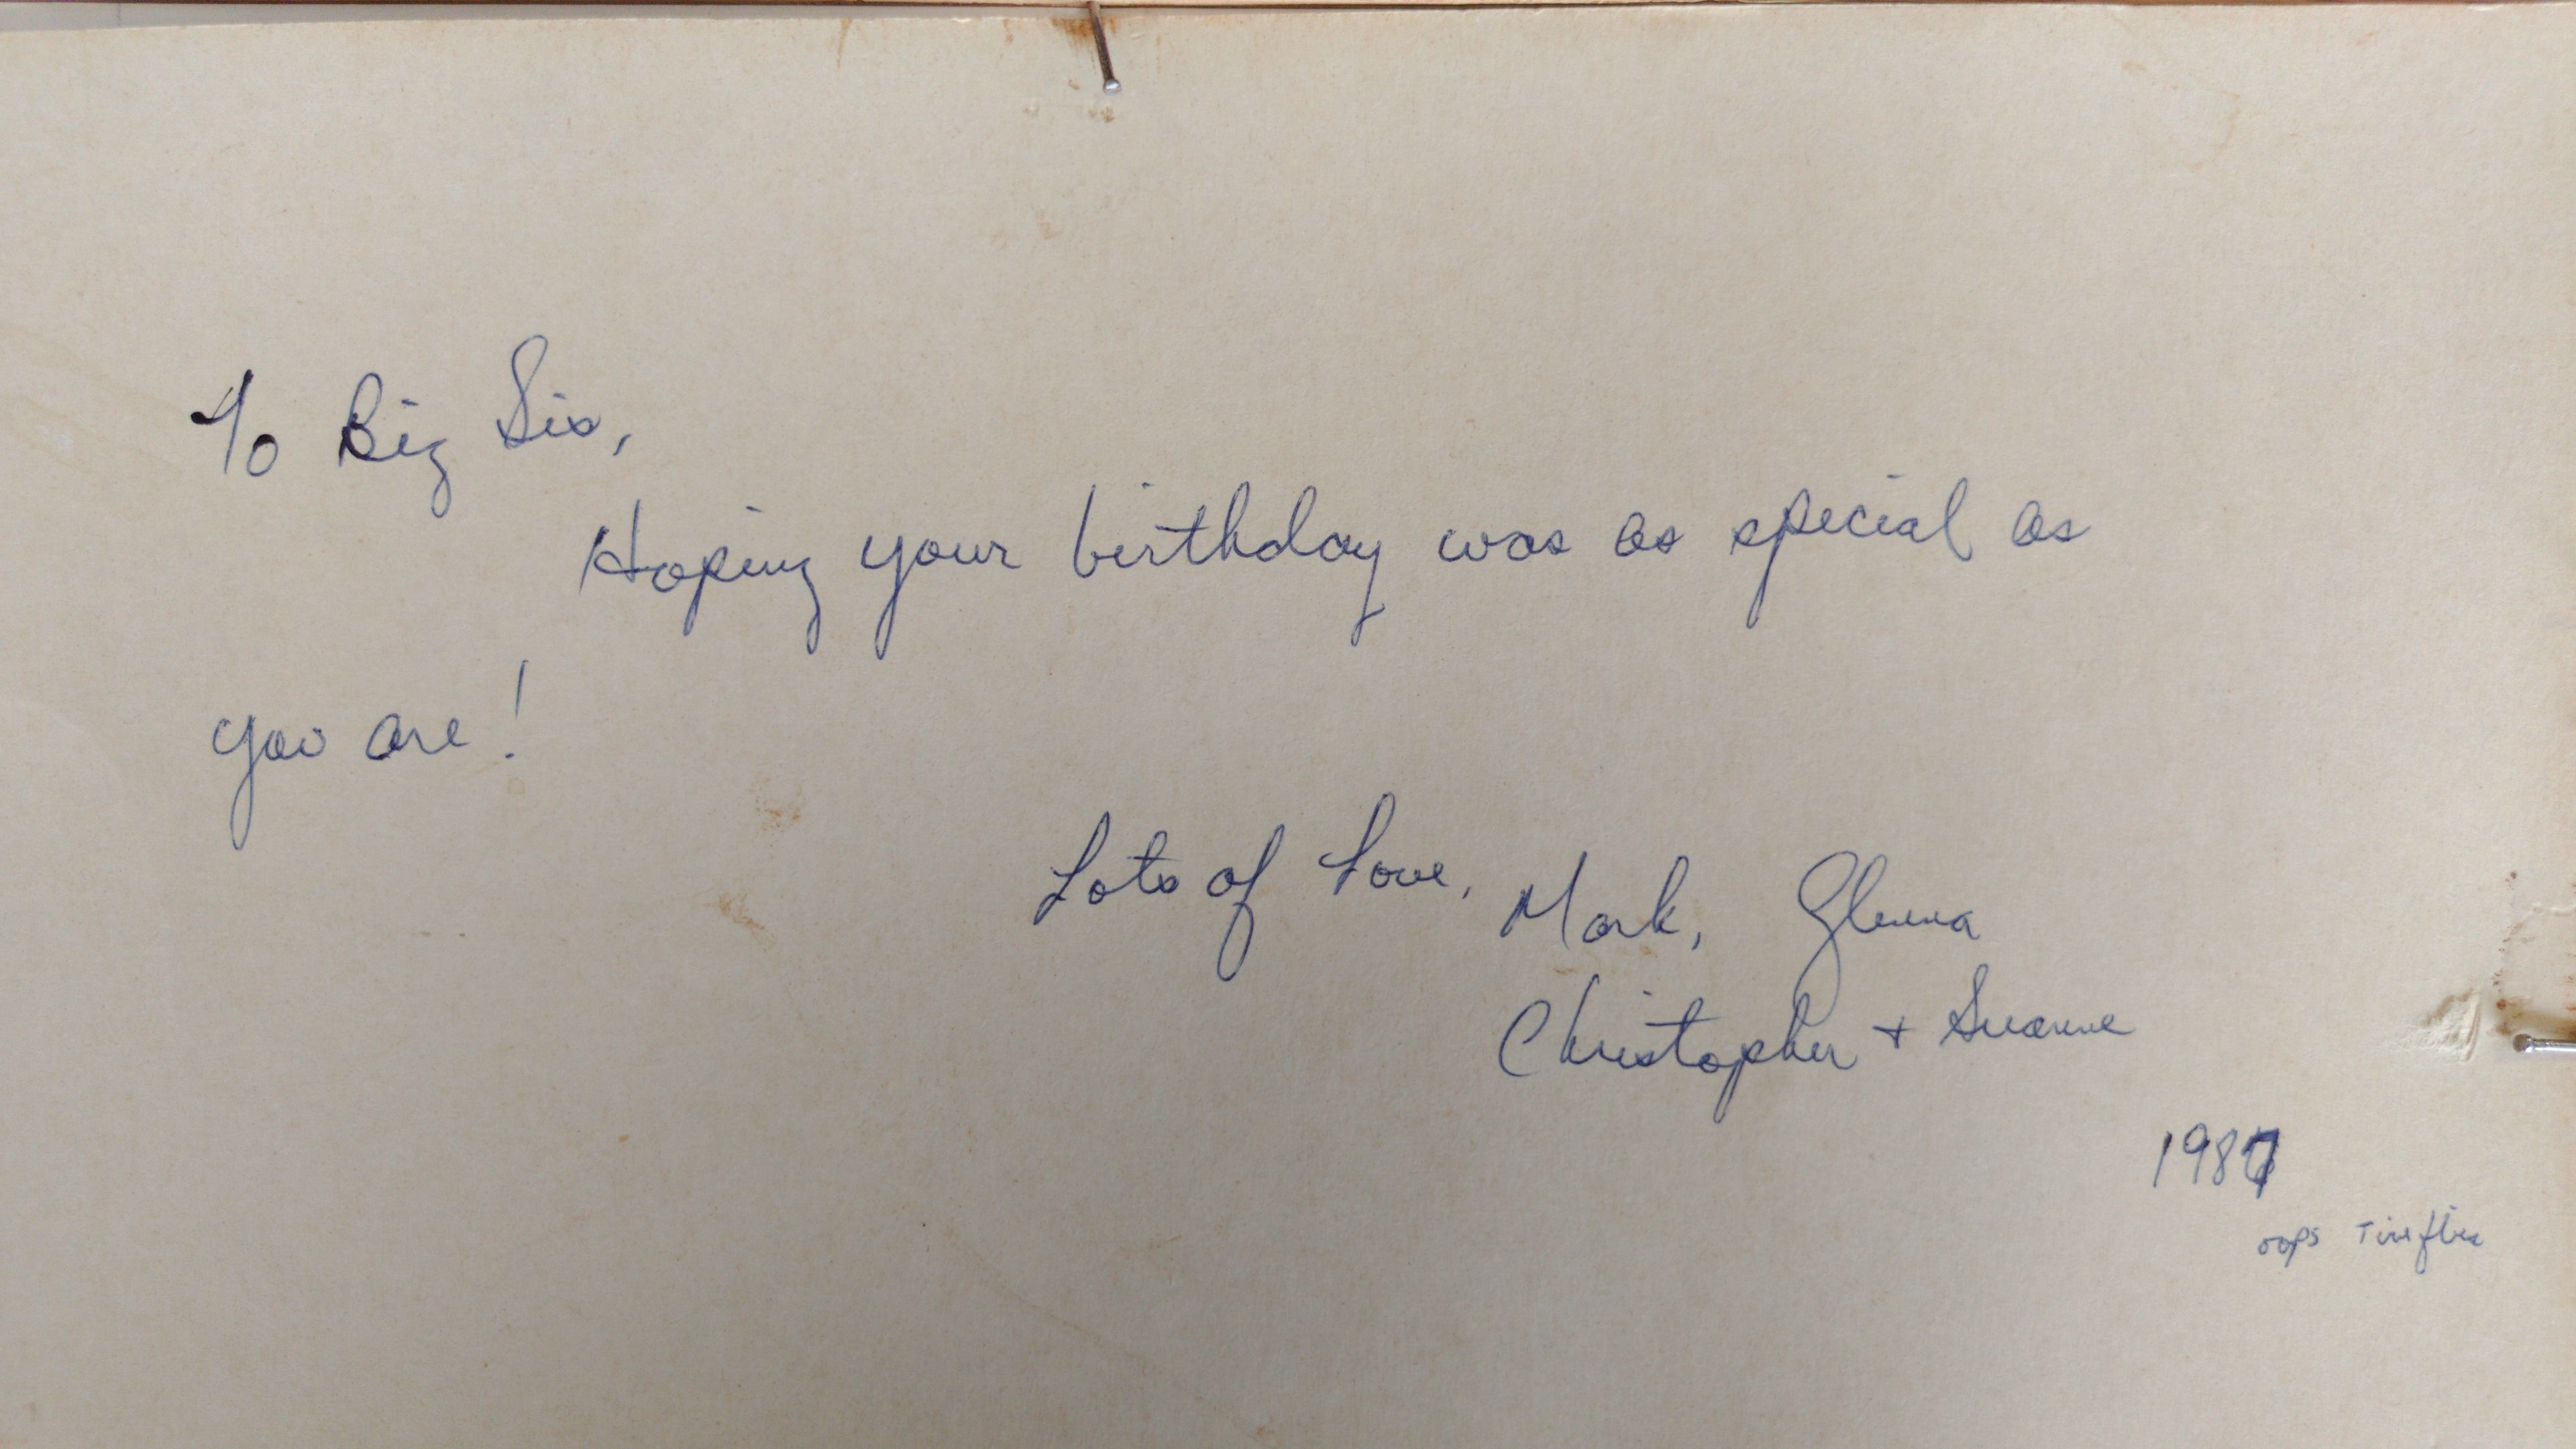 To Big Sis,
Hoping your birthday was as special as
you are!
Lots of Love, Mark, Glenna
Christopher + Suanne
1987
oops Time flies